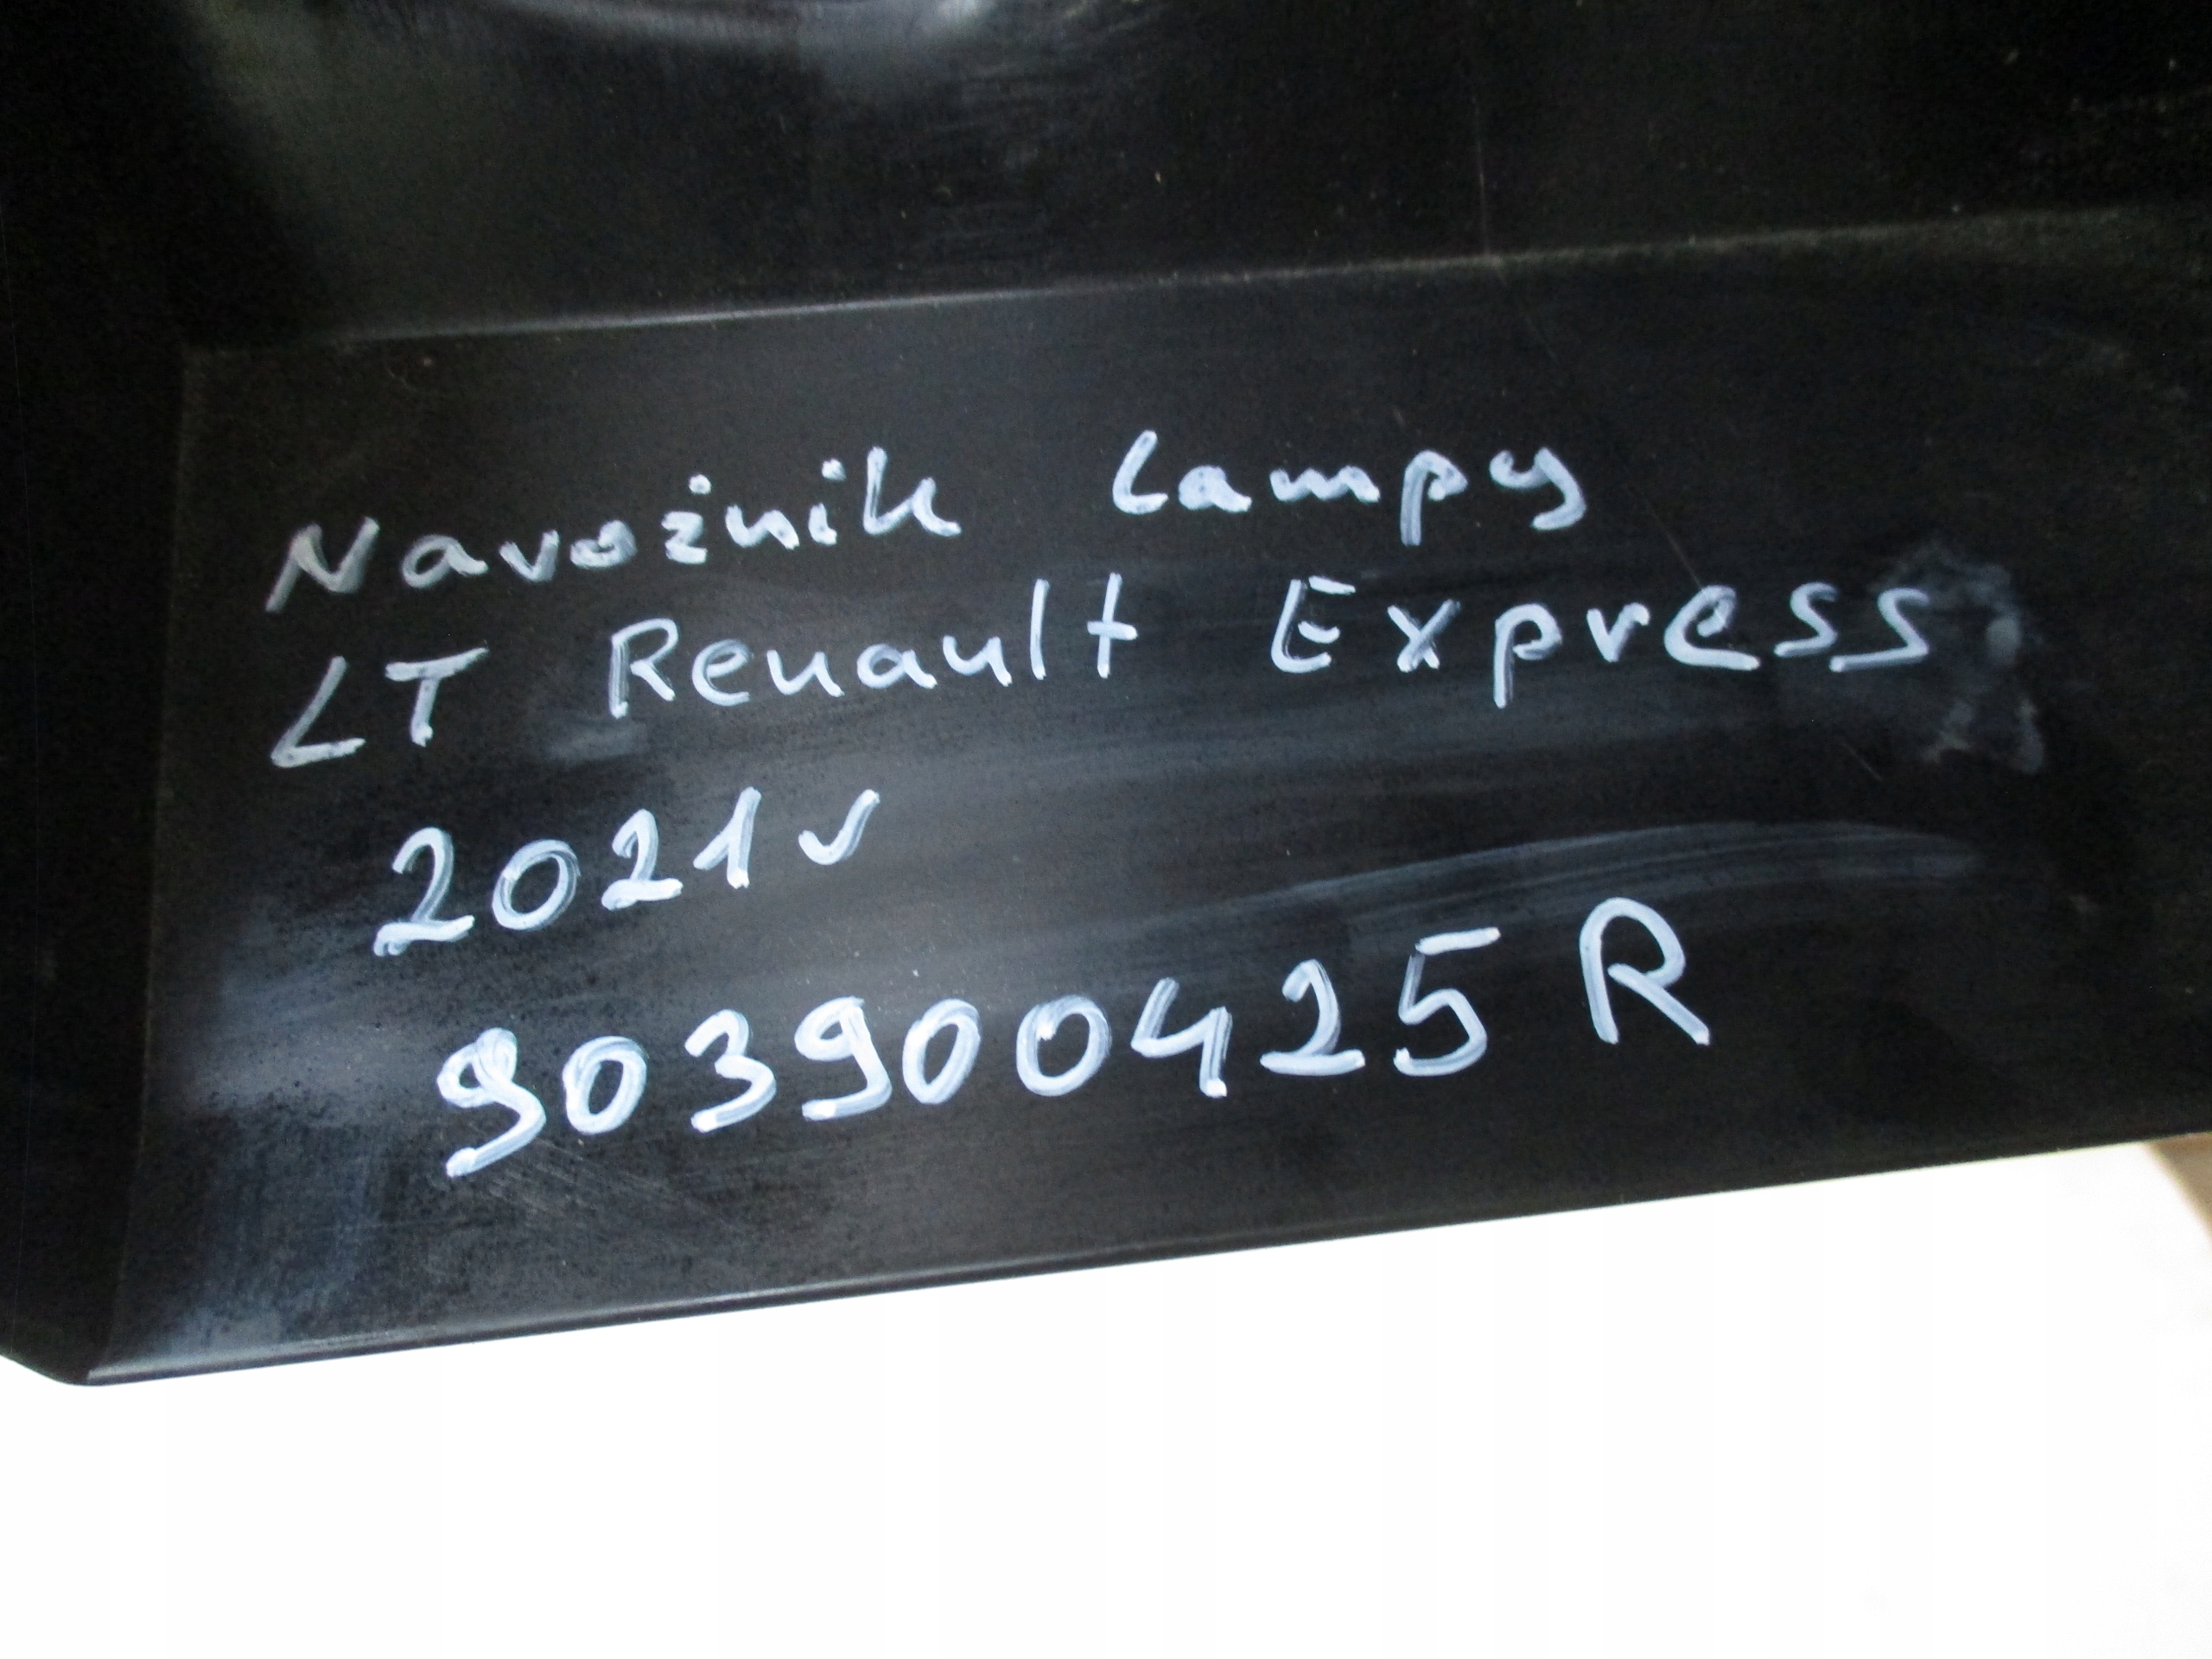 Narożnik lampy
LT Renault Express
2021r
903900425R